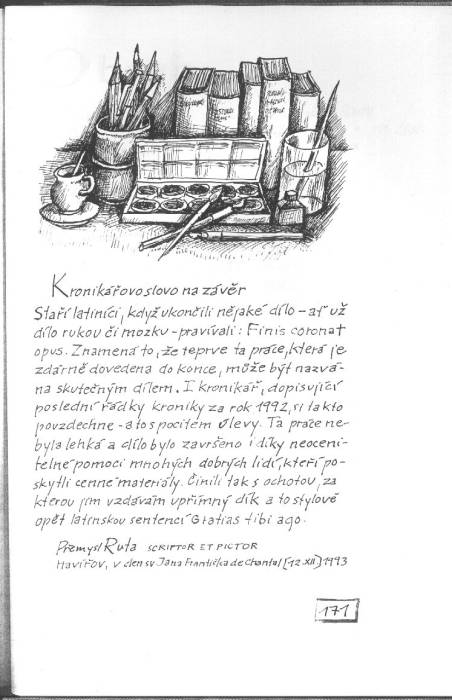 Kronikářovo slovo na závěr
Staří latiníci, když ukončili nějaké dílo – ať už
dílo rukou či mozku – pravívali: Finis coronat
opus. Znamená to, že teprve ta práce, která je
zdárně dovedena do konce, může být nazvá-
na skutečným dílem. I kronikář, dopisující
poslední řádky kroniky za rok 1992, si takto
povzdechne – a to s pocitem úlevy. Ta práce ne-
byla lehká a dílo bylo završeno i díky neoceni-
telné pomoci mnohých dobrých lidí, kteří po-
skytli cenné materiály. Činili tak s ochotou, za
kterou jim vzdávám upřímný dík a to stylově
opět latinskou sentencí Gratias tibi ago.
Přemysl Ruta SCRIPTOR ET PICTOR
Havířov, v den sv Jana Františka de Chantal [12.XII] 1993
171